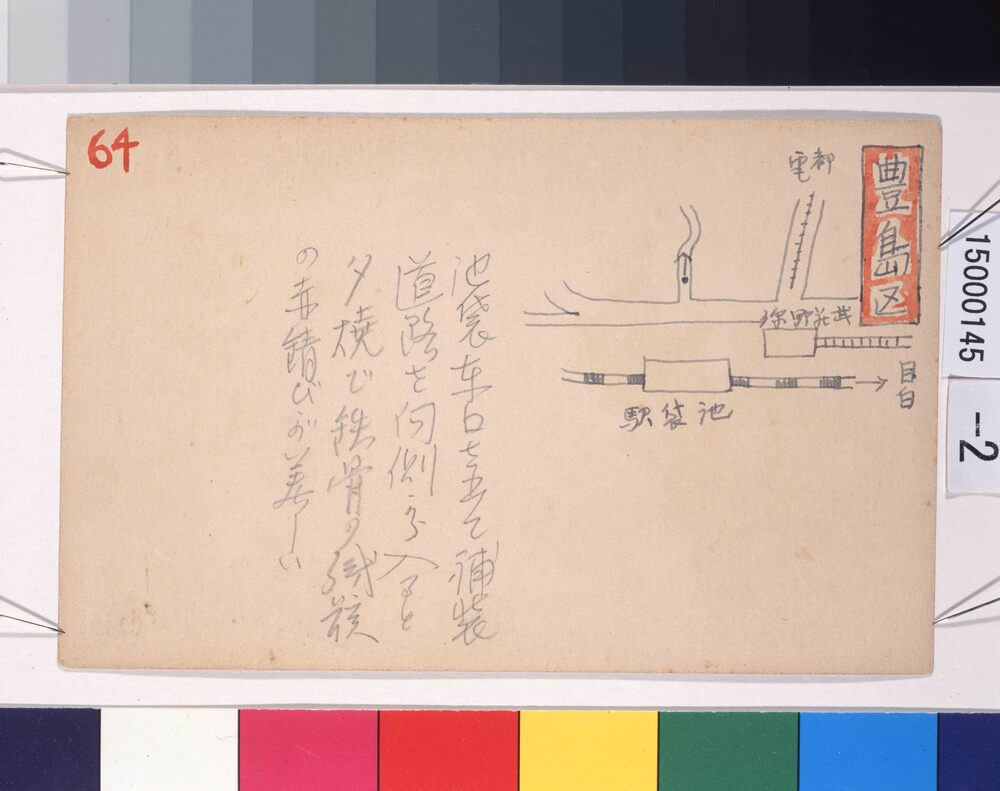 64
豊島区
都電
武蔵野線
目白
池袋駅
池袋東口を出て補装
道路を向側から入ると
夕焼で鉄骨の残骸
の赤錆びが美しい
15000145
-2